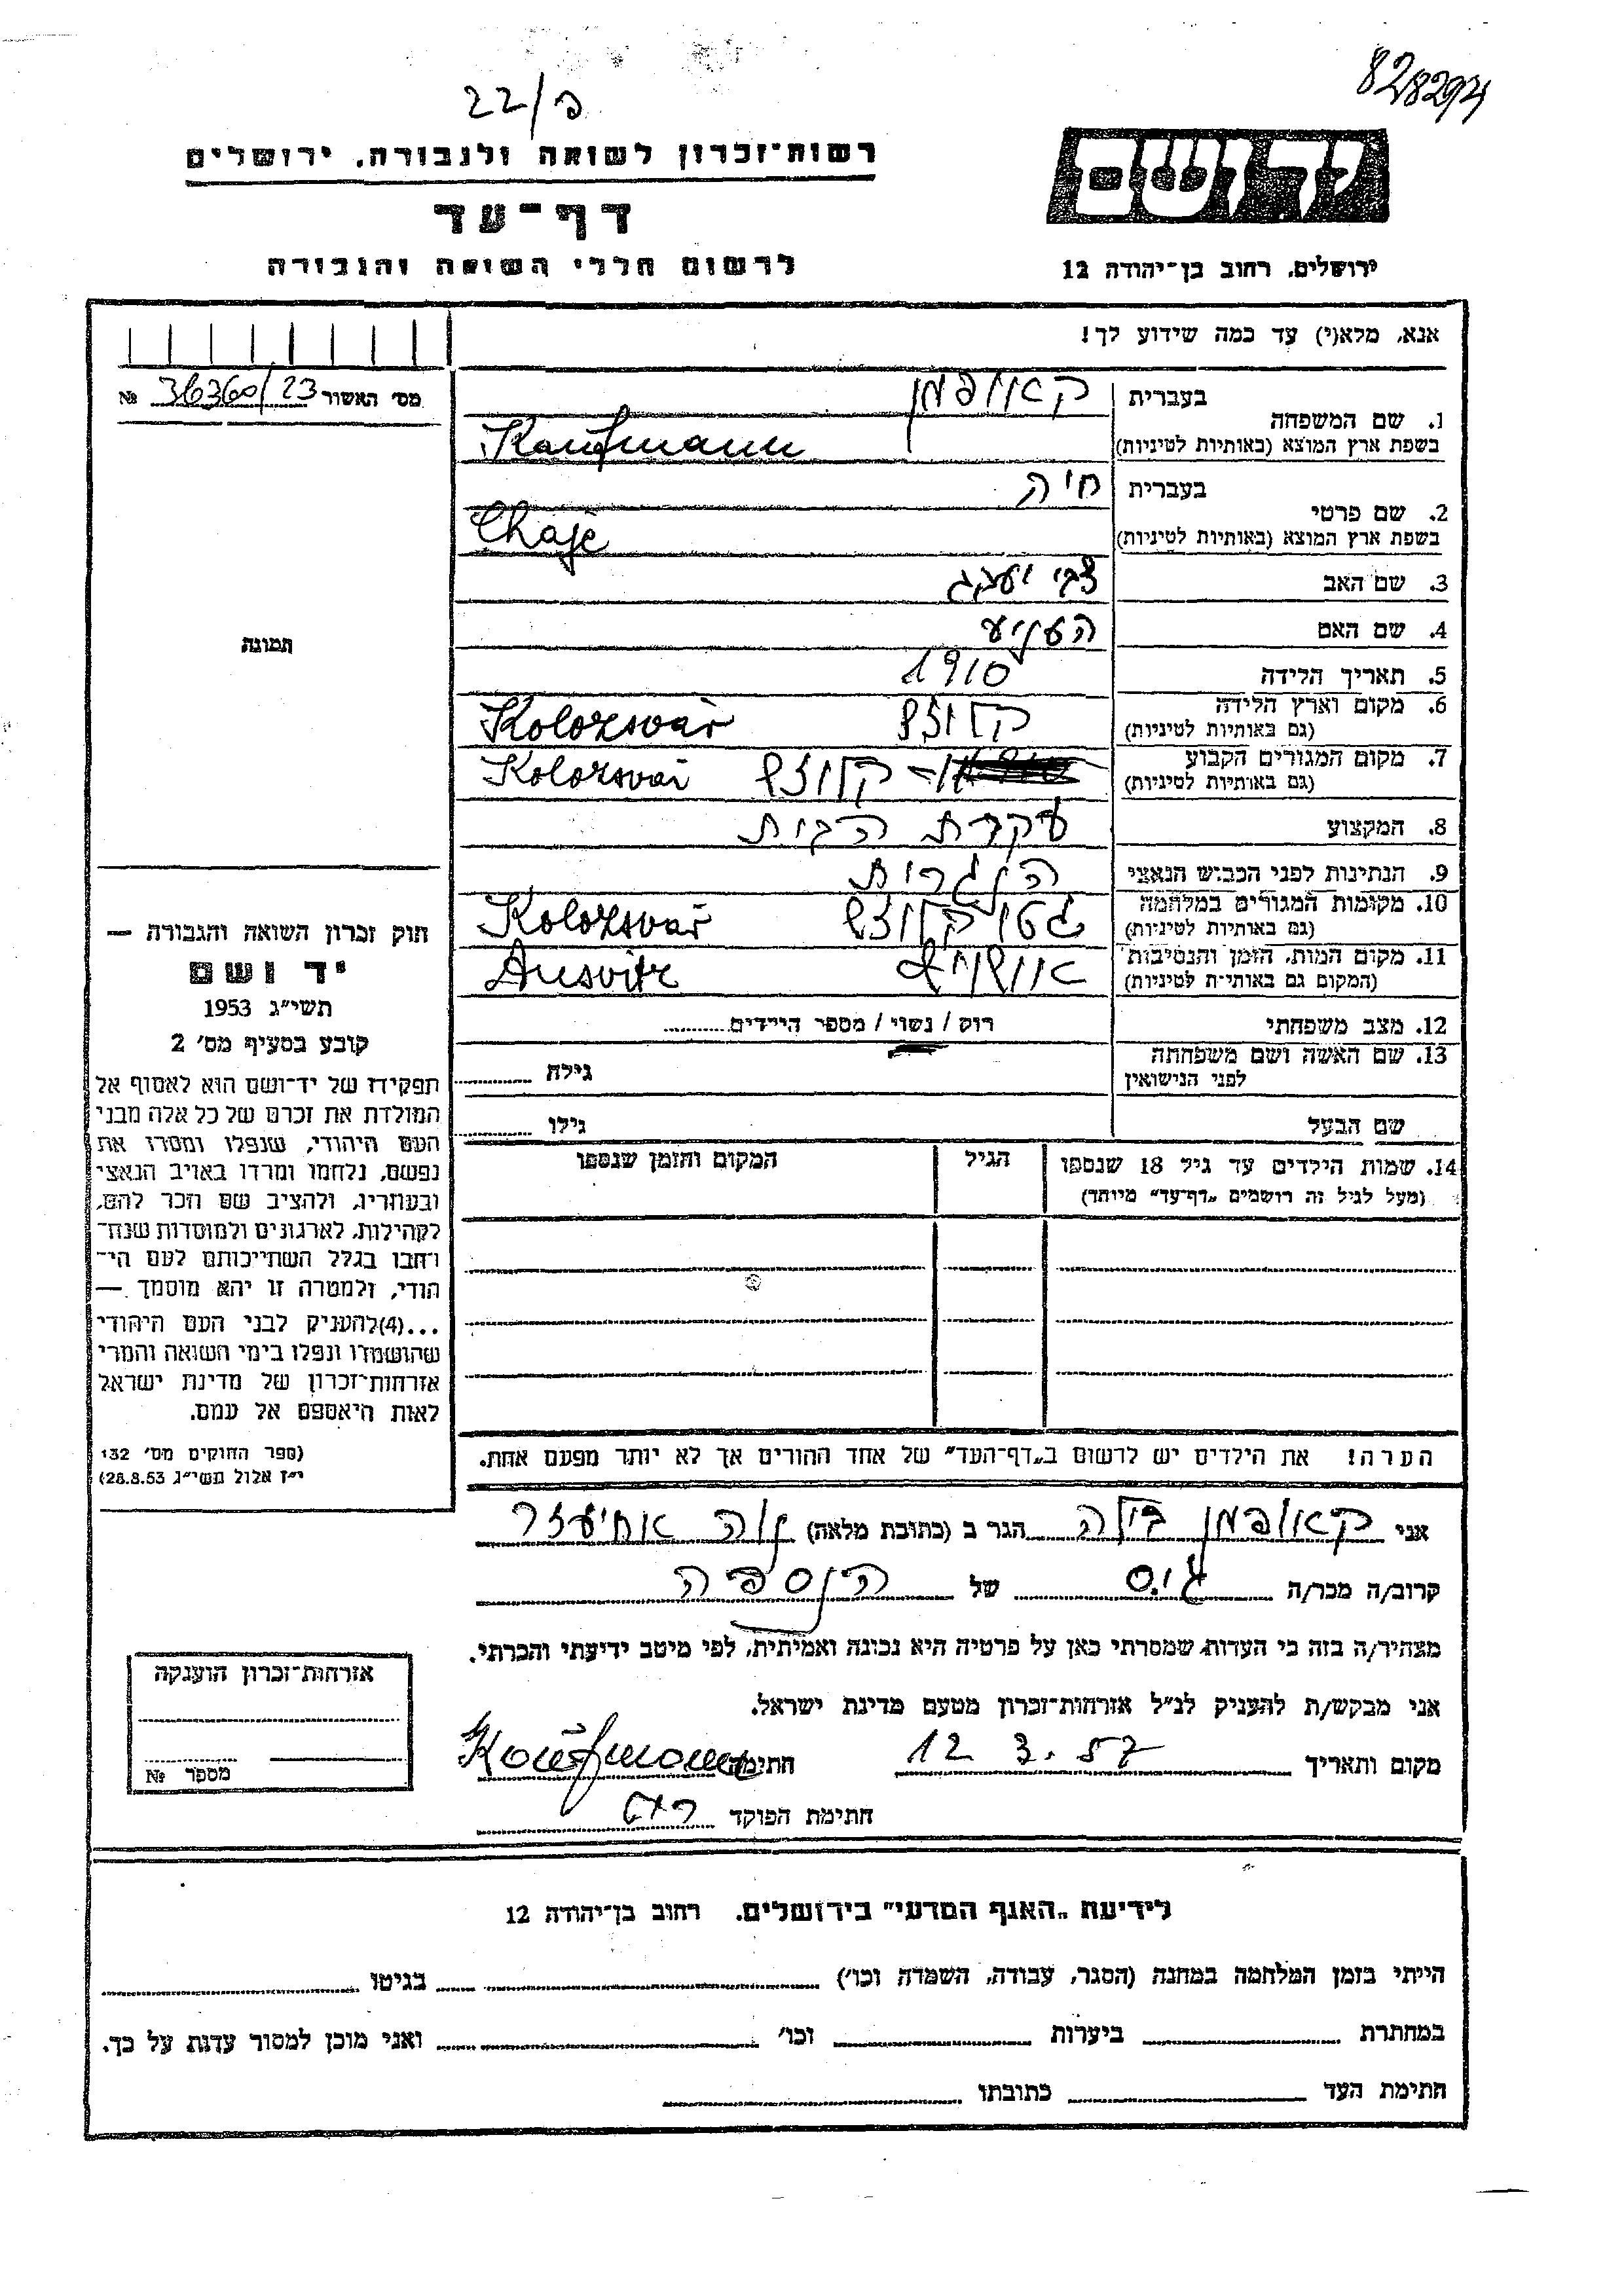 82/82921
22/פ
רשות־זכרון לשואה ולגבורה, ירושלים
יד ושם
דף־עד
לרשום חללי השואה והגבורה
ירושלים, רחוב בן־יהודה 12
אנא, מלא(י) עד כמה שידוע לך!
מס' האשור 36360/23 №
בעברית קאופמן
1. שם המשפחה
בשפת ארץ המוצא (באותיות לטיניות) Kaufmann
בעברית חיה
2. שם פרטי
בשפת ארץ המוצא (באותיות לטיניות) Chaje
3. שם האב צבי יעקב
4. שם האם
תמונה
5. תאריך הלידה 1910
6. מקום וארץ הלידה קלוז'
(גם באותיות לטיניות) Kolozsvár
7. מקום המגורים הקבוע קלוז'
(גם באותיות לטיניות) Kolozsvár
8. המקצוע עקרת הבית
9. הנתינות לפני הכבוש הנאצי הונגרית
10. מקומות המגורים במלחמה גטו קלוז'
(גם באותיות לטיניות) Kolozsvár
11. מקום המות, הזמן והנסיבות אושויץ
(המקום גם באותיות לטיניות) Ausvitz
12. מצב משפחתי רוק / נשוי / מספר הילדים
13. שם האשה ושם משפחתה
לפני הנישואין גילה
שם הבעל גילו
14. שמות הילדים עד גיל 18 שנספו הגיל המקום והזמן שנספו
(מעל לגיל זה רושמים „דף־עד" מיוחד)
חוק זכרון השואה והגבורה —
יד ושם
תשי"ג 1953
קובע בסעיף מס' 2
תפקידו של יד־ושם הוא לאסוף אל
המולדת את זכרם של כל אלה מבני
העם היהודי, שנפלו ומסרו את
נפשם, נלחמו ומרדו באויב הנאצי
ובעוזריו, ולהציב שם וזכר להם,
לקהילות, לארגונים ולמוסדות שנח־
רחבו בגלל השתייכותם לעם הי־
הודי, ולמטרה זו יהא מוסמך —
...(4)להעניק לבני העם היהודי
שהושמדו ונפלו בימי השואה והמרי
אזרחות־זכרון של מדינת ישראל
לאות היאספם אל עמם.
(ספר החוקים מס' 132
י"ז אלול תשי"ג 28.8.53)
הערה! את הילדים יש לרשום ב„דף־העד" של אחד ההורים אך לא יותר מפעם אחת.
אני קאופמן בילה הגר ב (כתובת מלאה) נוה אחיעזר
קרוב/ה מכר/ה גיס של הנספה
מצהיר/ה בזה כי העדות שמסרתי כאן על פרטיה היא נכונה ואמיתית, לפי מיטב ידיעתי והכרתי.
אני מבקש/ת להעניק לנ"ל אזרחות־זכרון מטעם מדינת ישראל.
מקום ותאריך 12 3. 57 חתימה Kaufmann
חתימת הפוקד
אזרחות־זכרון הוענקה
מספר №
לידיעת „האגף המדעי" בירושלים. רחוב בן־יהודה 12
הייתי בזמן המלחמה במחנה (הסגר, עבודה, השמדה וכו') בגיטו
במחתרת ביערות וכו' ואני מוכן למסור עדות על כך.
חתימת העד כתובתו